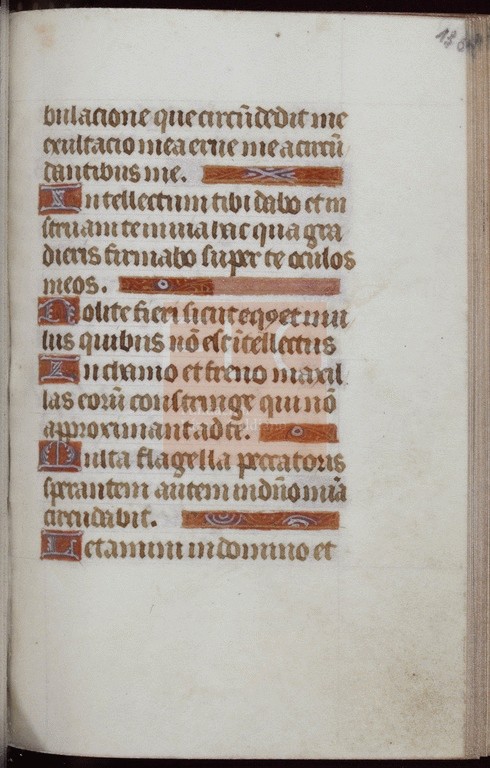 bulacione que circūdedit me
exultacio mea erue me a circū
dantibus me.
Intellectum tibi dabo et in
struam te in uia hac qua gra
dieris firmabo super te oculos
meos.
Nolite fieri sicut equs et mu
lus quibus nō est ītellectus
In chamo et freno maxil
las eorū constringe qui nō
approximant ad te.
Multa flagella peccatoris
sperantem autem in dn̄o mīa
circūdabit.
Letamini in domino et